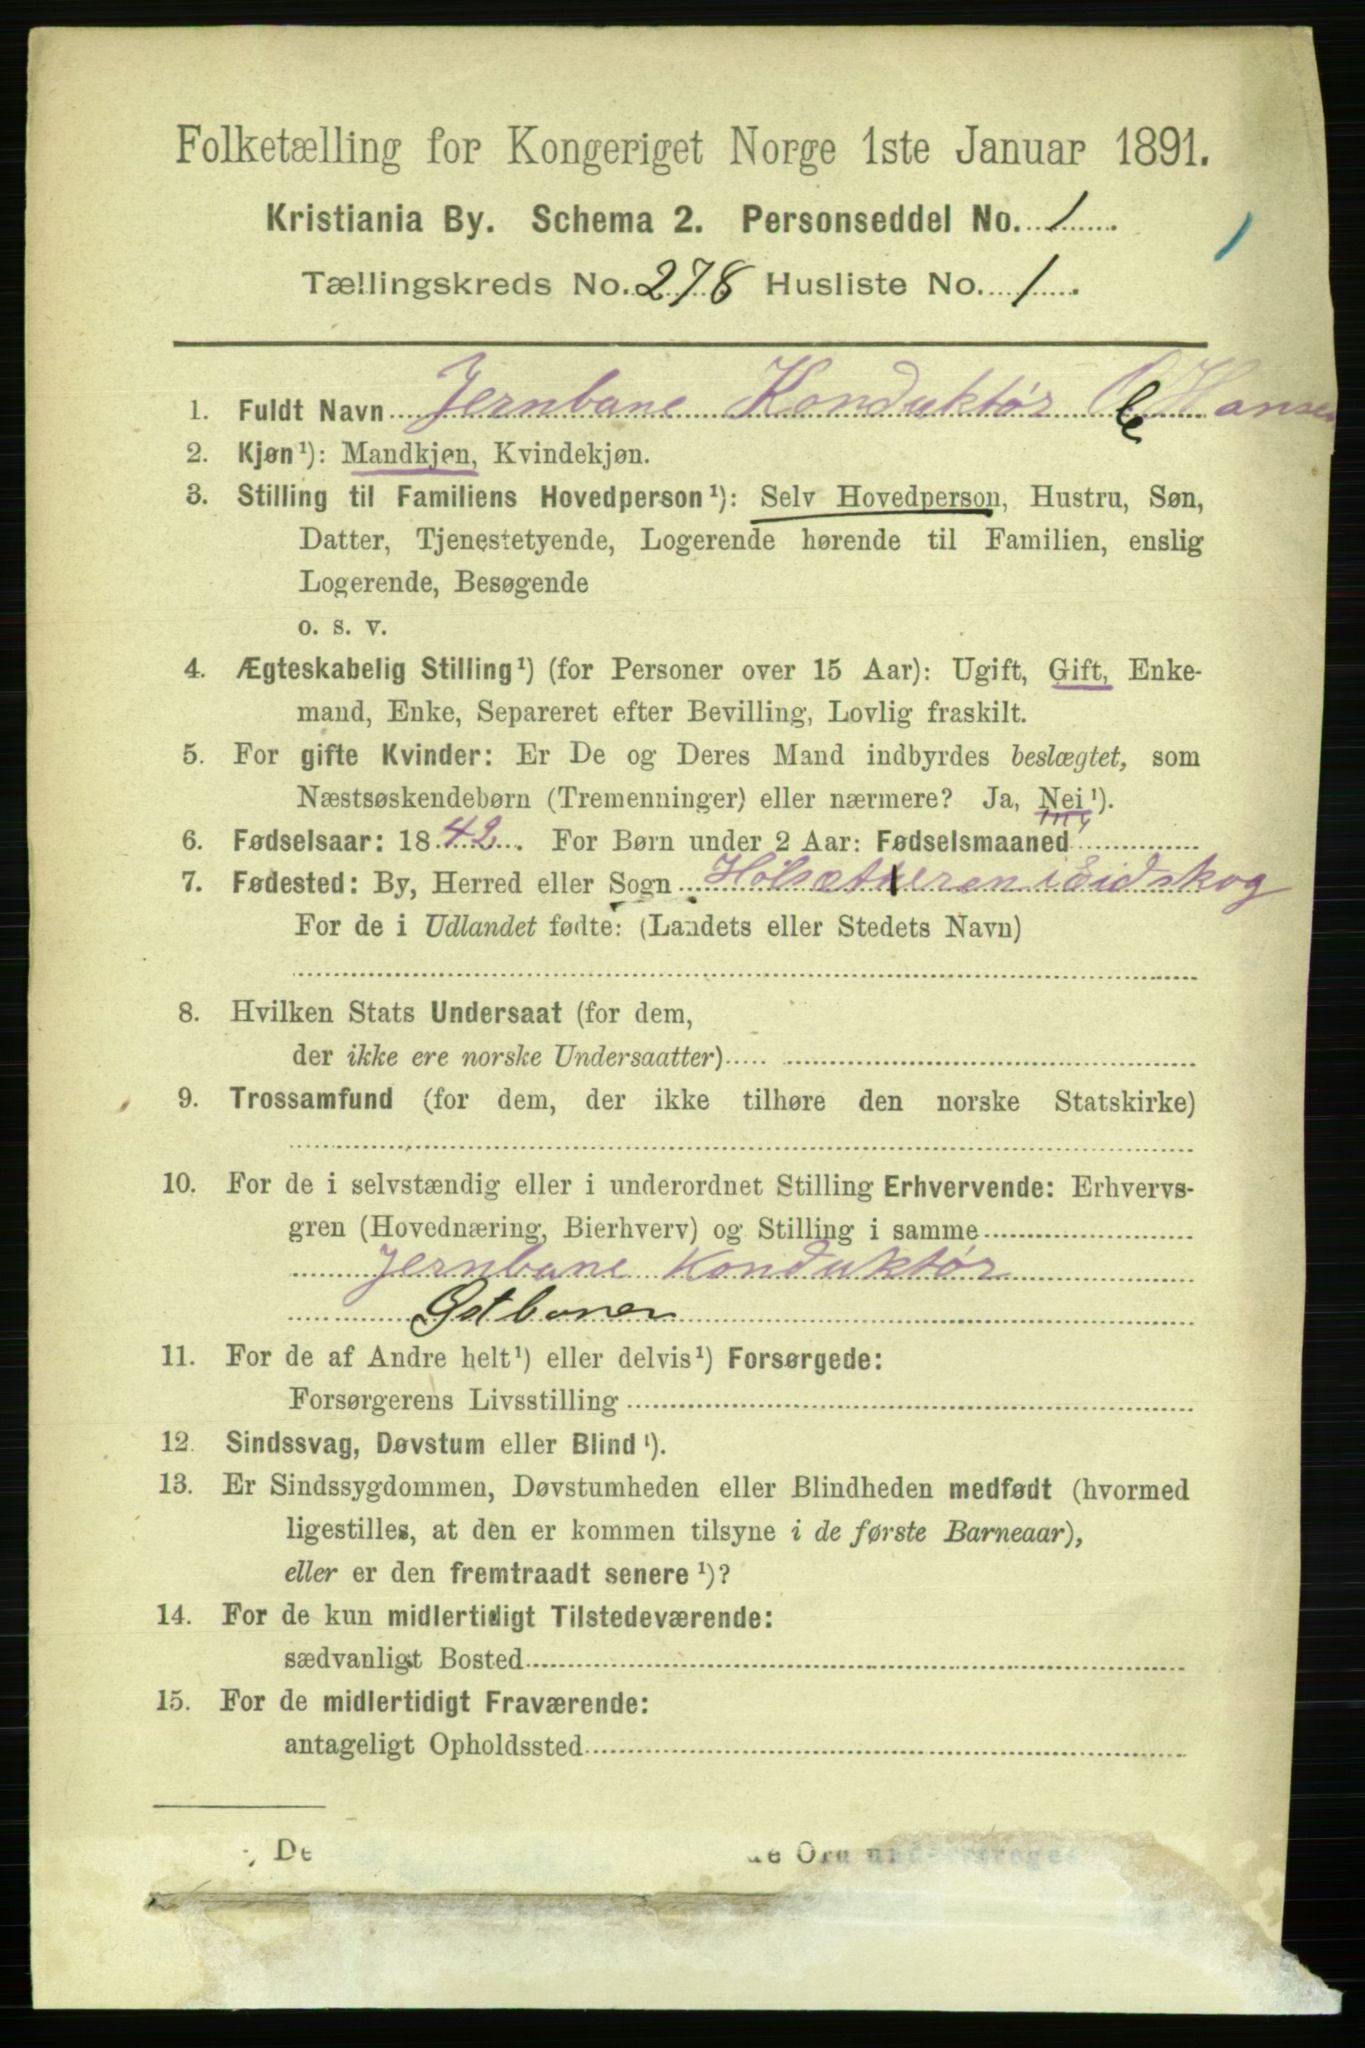 Folketælling for Kongeriget Norge 1ste Januar 1891.
Kristiania By. Schema 2. Personseddel No. 1.
1
Tællingskreds No. 278 Husliste No. 1.
1. Fuldt Navn Jernbane Konduktør Hansen
2. Kjøn¹): Mandkjøn, Kvindekjøn.
3. Stilling til Familiens Hovedperson¹): Selv Hovedperson, Hustru, Søn,
Datter, Tjenestetyende, Logerende hørende til Familien, enslig
Logerende, Besøgende
o. s. v.
4. Ægteskabelig Stilling¹) (for Personer over 15 Aar): Ugift, Gift, Enke-
mand, Enke, Separeret efter Bevilling, Lovlig fraskilt.
5. For gifte Kvinder: Er De og Deres Mand indbyrdes beslægtet, som
Næstsøskendebørn (Tremenninger) eller nærmere? Ja, Nei¹).
6. Fødselsaar: 1842. For Børn under 2 Aar: Fødselsmaaned
7. Fødested: By, Herred eller Sogn i Eidskog
For de i Udlandet fødte: (Landets eller Stedets Navn)
8. Hvilken Stats Undersaat (for dem,
der ikke ere norske Undersaatter)
9. Trossamfund (for dem, der ikke tilhøre den norske Statskirke)
10. For de i selvstændig eller i underordnet Stilling Erhvervende: Erhvervs-
gren (Hovednæring, Bierhverv) og Stilling i samme
Jernbane Konduktør
Østbanen
11. For de af Andre helt¹) eller delvis¹) Forsørgede:
Forsørgerens Livsstilling
12. Sindssvag, Døvstum eller Blind¹).
13. Er Sindssygdommen, Døvstumheden eller Blindheden medfødt (hvormed
ligestilles, at den er kommen tilsyne i de første Barneaar),
eller er den fremtraadt senere¹)?
14. For de kun midlertidigt Tilstedeværende:
sædvanligt Bosted
15. For de midlertidigt Fraværende:
antageligt Opholdssted
De